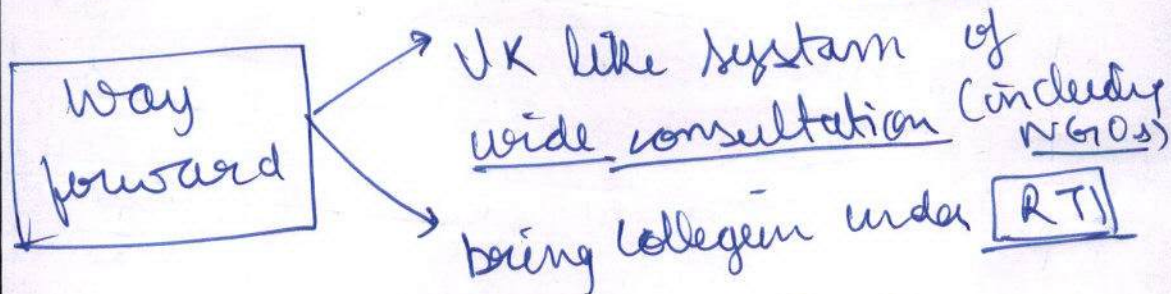 Way
forward
UK like system of
wide consultation (including
NGOs)
bring collegium under RTI